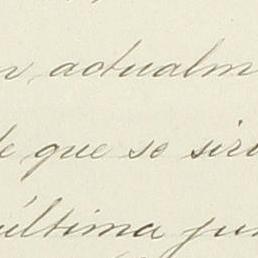 n actualm
de que se sir
última ju